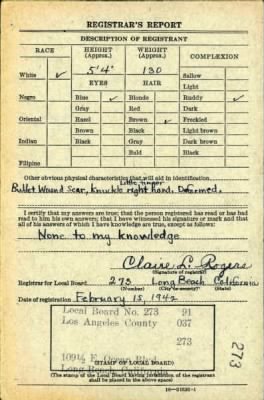 REGISTRAR'S REPORT
DESCRIPTION OF REGISTRANT
RACE HEIGHT (Approx.) WEIGHT (Approx.) COMPLEXION
White ✓ 5' 4" 130 Sallow
EYES HAIR Light
Negro Blue ✓ Blonde Ruddy ✓
Gray Red Dark
Oriental Hazel Brown ✓ Freckled
Brown Black Light brown
Indian Black Gray Dark brown
Bald Black
Filipino
Other obvious physical characteristics that will aid in identification
Little finger
Bullet Wound Scar, Knuckle right hand. Deformed.
I certify that my answers are true; that the person registered has read or has had
read to him his own answers; that I have witnessed his signature or mark and that
all of his answers of which I have knowledge are true, except as follows:
None to my knowledge
Claire L. Rogers
(Signature of registrar)
Registrar for Local Board 273 Long Beach California
(Number) (City or county)
Date of registration February 15, 1942
Local Board No. 273 91
Los Angeles County 037
273
109½ E. Ocean Blvd.
Long Beach, California
(STAMP OF LOCAL BOARD)
(The stamp of the Local Board having jurisdiction of the registrant
shall be placed in the above space)
273